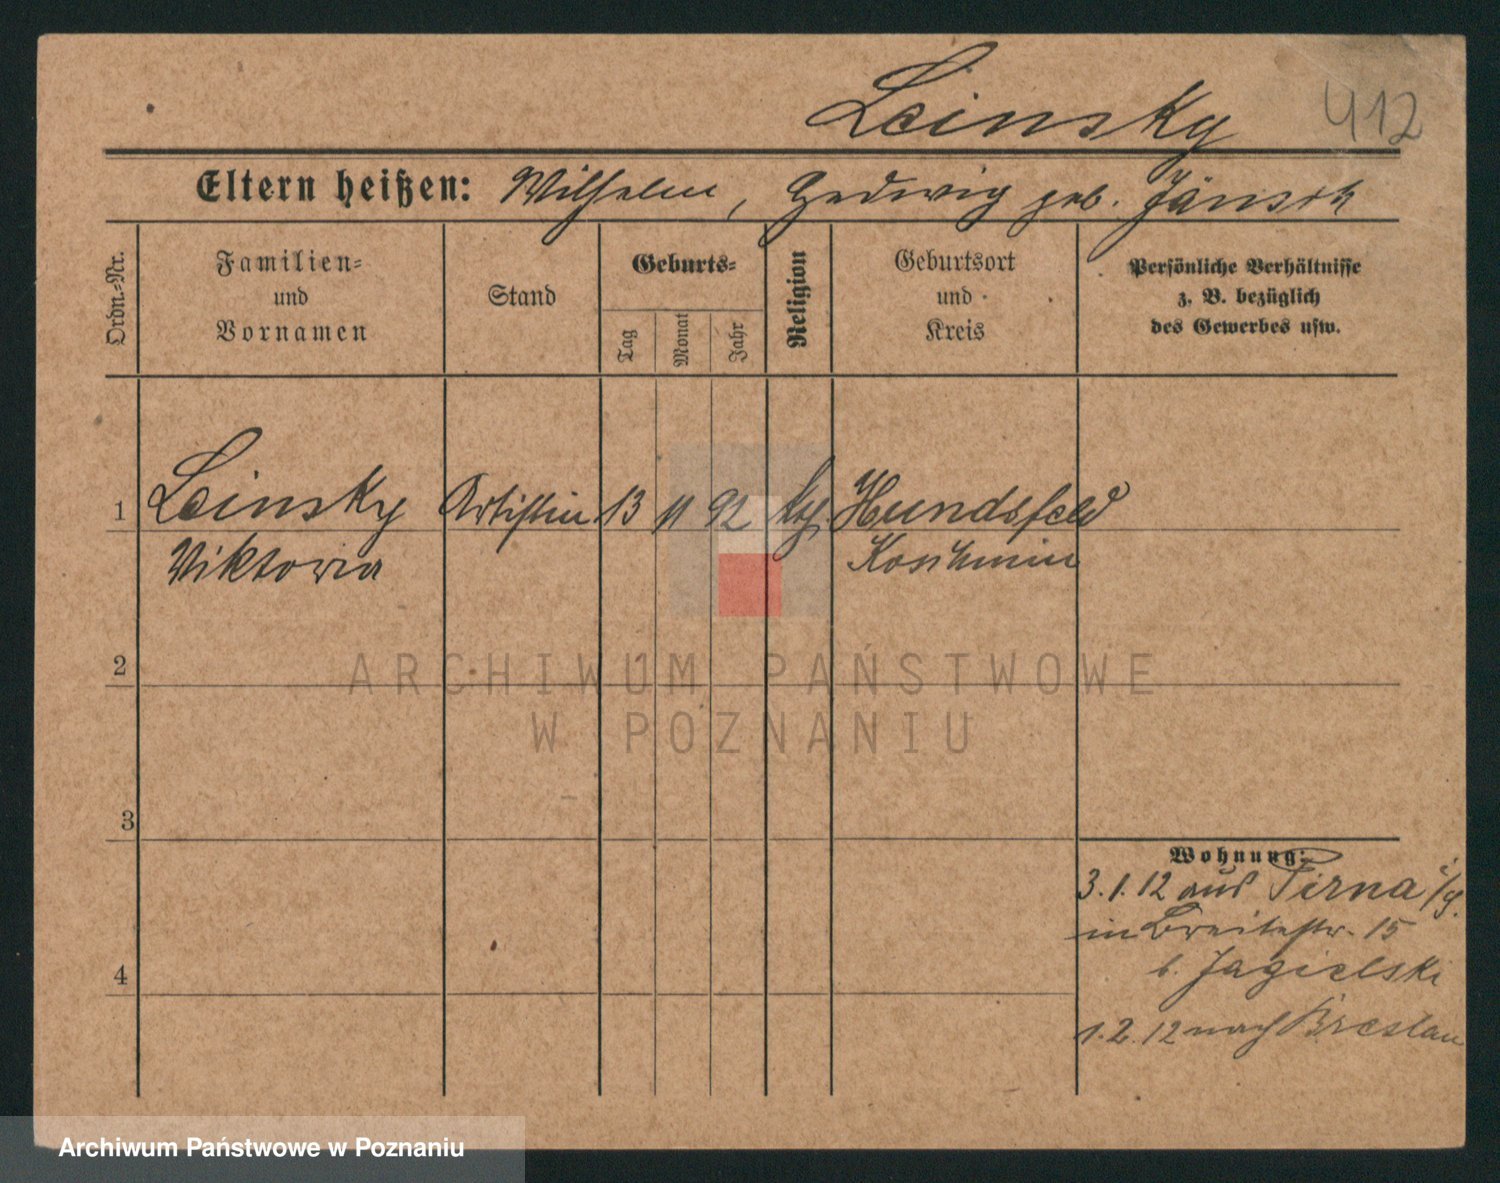 Leinsky 412
Eltern heißen: Wilhelm, Hedwig geb. Jänsch
Ordn.-Nr.
Familien-
und
Vornamen
Stand
Geburts-
Tag
Monat
Jahr
Religion
Geburtsort
und
Kreis
Persönliche Verhältnisse
z. B. bezüglich
des Gewerbes usw.
1 Leinsky Artistin 13 11 92 kth Hundsfeld
Viktoria Koschmin
2
ARCHIWUM PAŃSTWOWE
W POZNANIU
3
Wohnung:
3.1.12 aus Pirna
in Breitestr. 15
4
b. Jagielski
1.2.12 nach Breslau
Archiwum Państwowe w Poznaniu